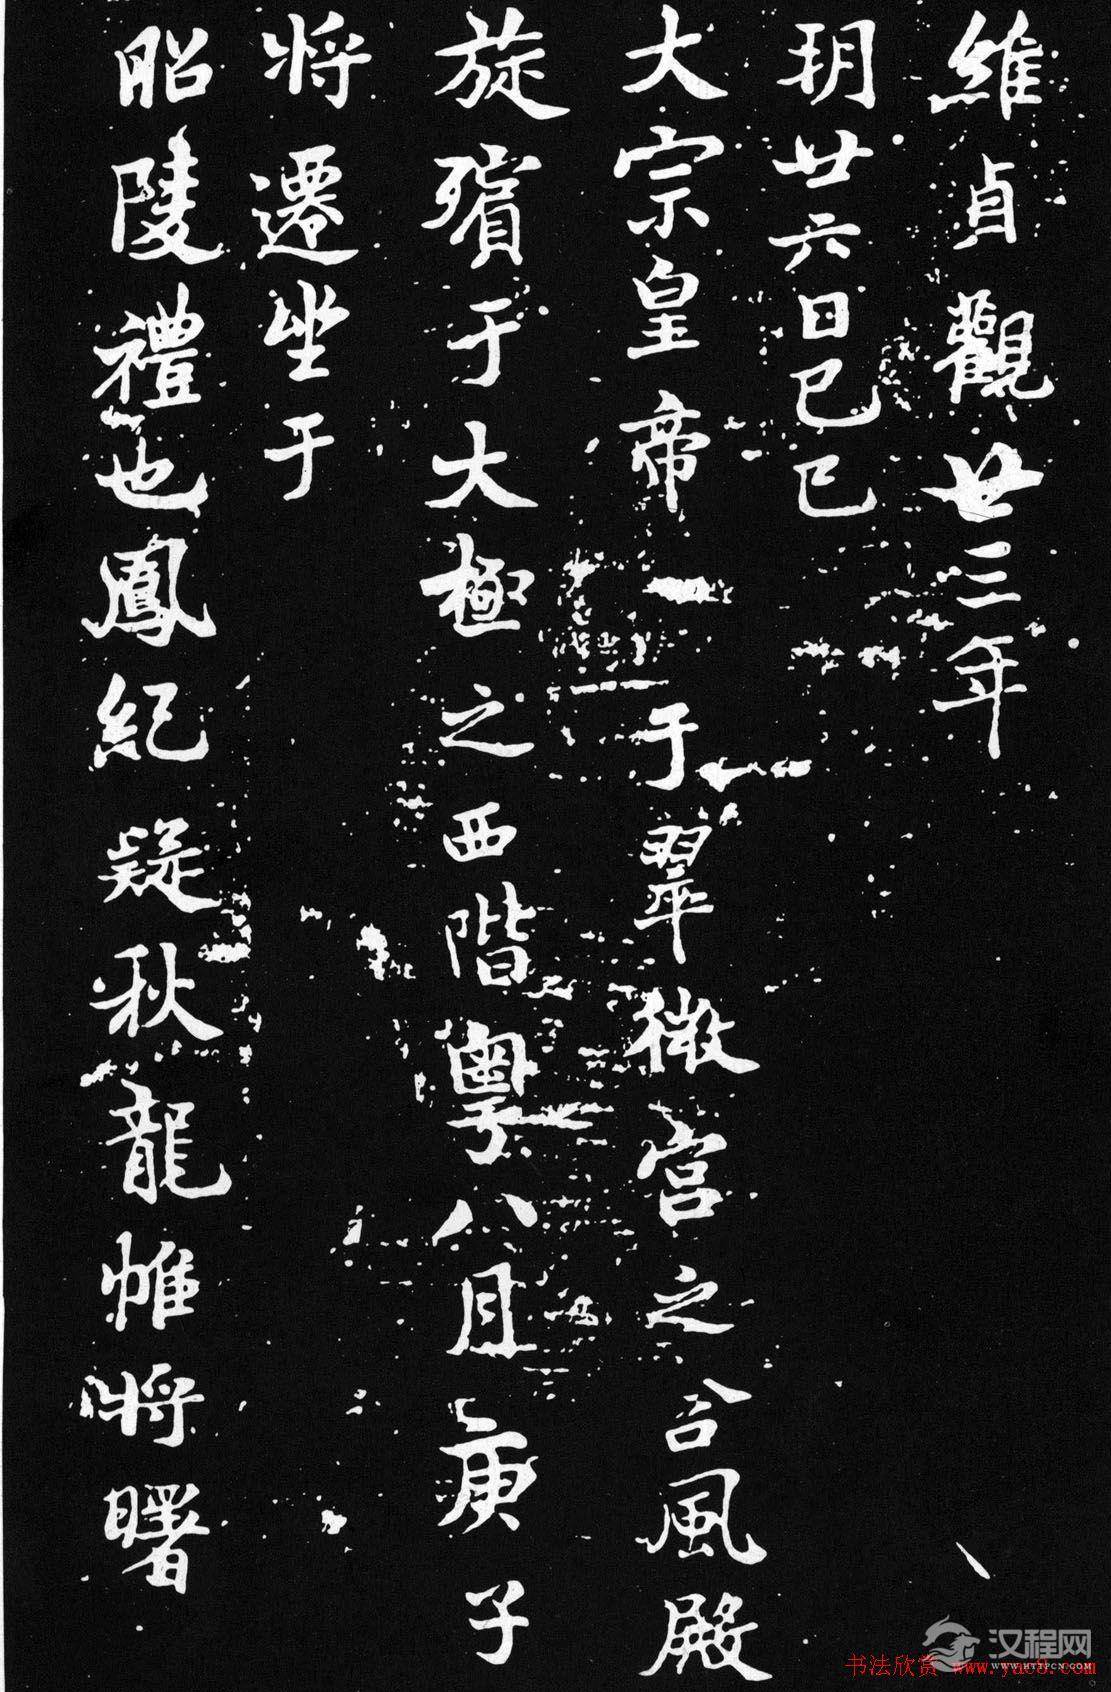 維貞觀廿三年
朔廿六日己巳
大宗皇帝于翠微宮之含風殿
旋殯于大極之西階粵八月庚子
將遷坐于
昭陵禮也鳳紀疑秋龍帷將曙
汉程网
WWW.HTTPCN.COM
书法欣赏 www.yac8.com